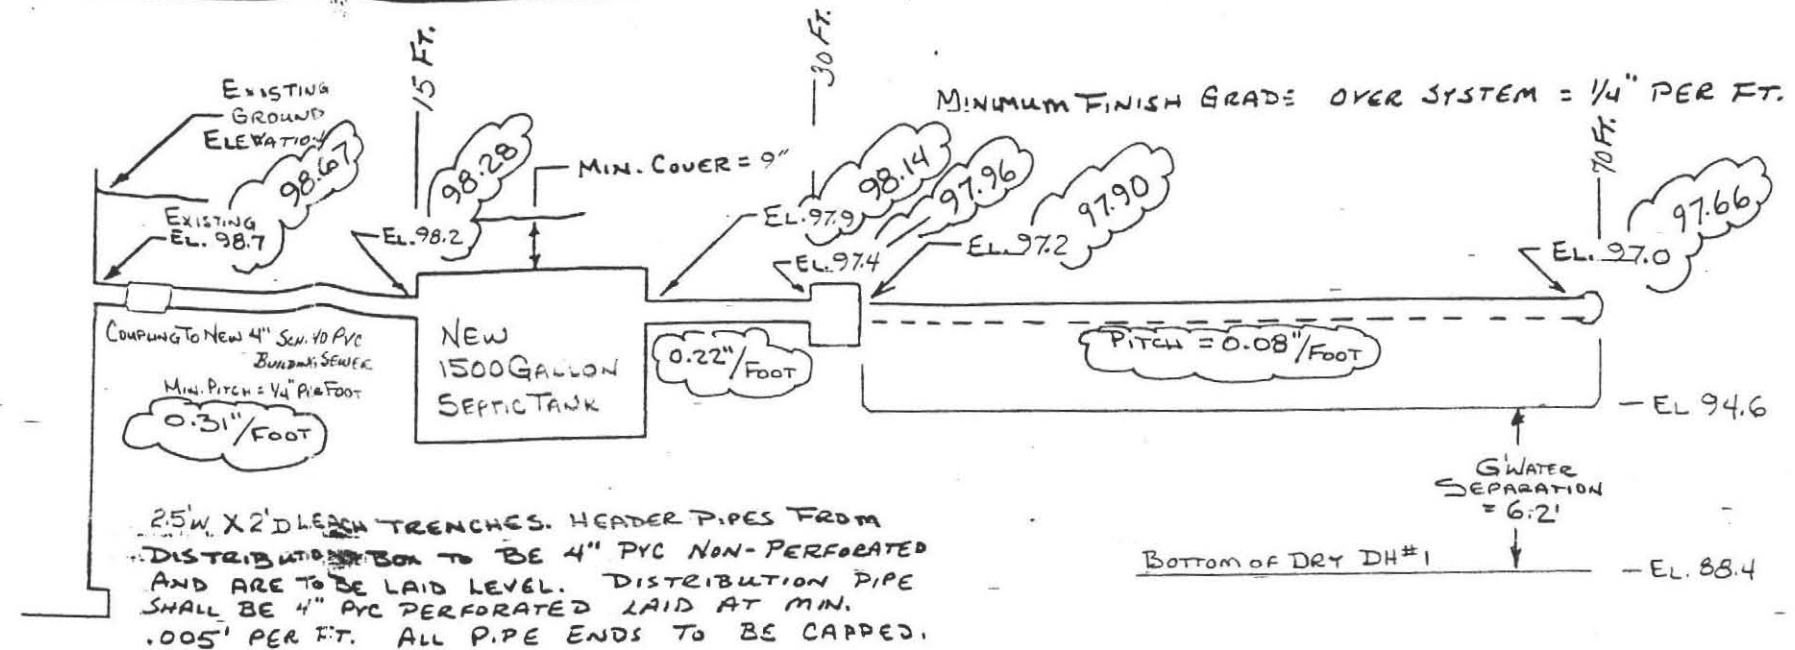 15 FT.
30 FT.
EXISTING
GROUND
ELEVATION
MINIMUM FINISH GRADE OVER SYSTEM = 1/4" PER FT.
70 FT.
98.67
98.28
MIN. COVER = 9"
98.14
97.96
97.90
97.66
EXISTING
EL. 98.7
EL. 98.2
EL. 97.9
EL. 97.4
EL. 97.2
EL. 97.0
COUPLING TO NEW 4" SCH. 40 PVC
BUILDING SEWER
MIN. PITCH = 1/4" PER FOOT
0.31"/FOOT
NEW
1500 GALLON
SEPTIC TANK
0.22"/FOOT
PITCH = 0.08"/FOOT
EL 94.6
G'WATER
SEPARATION
= 6.2'
BOTTOM OF DRY DH#1
EL. 88.4
2.5'W X 2'D LEACH TRENCHES. HEADER PIPES FROM
DISTRIBUTION BOX TO BE 4" PVC NON-PERFORATED
AND ARE TO BE LAID LEVEL. DISTRIBUTION PIPE
SHALL BE 4" PVC PERFORATED LAID AT MIN.
.005' PER FT. ALL PIPE ENDS TO BE CAPPED.